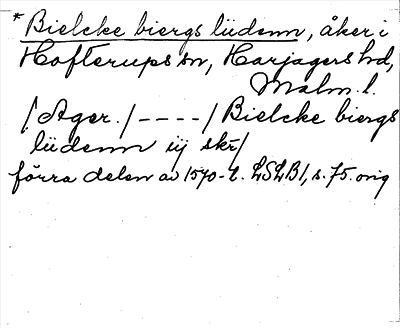 * Bielcke biergs lüdenn, åker i
Hofterups sn, Harjagers hd,
Malm. l.
/Ager./----/Bielcke biergs
lüdenn iij skr/
förra delen av 1570-t. LSLB1, s. 75. orig